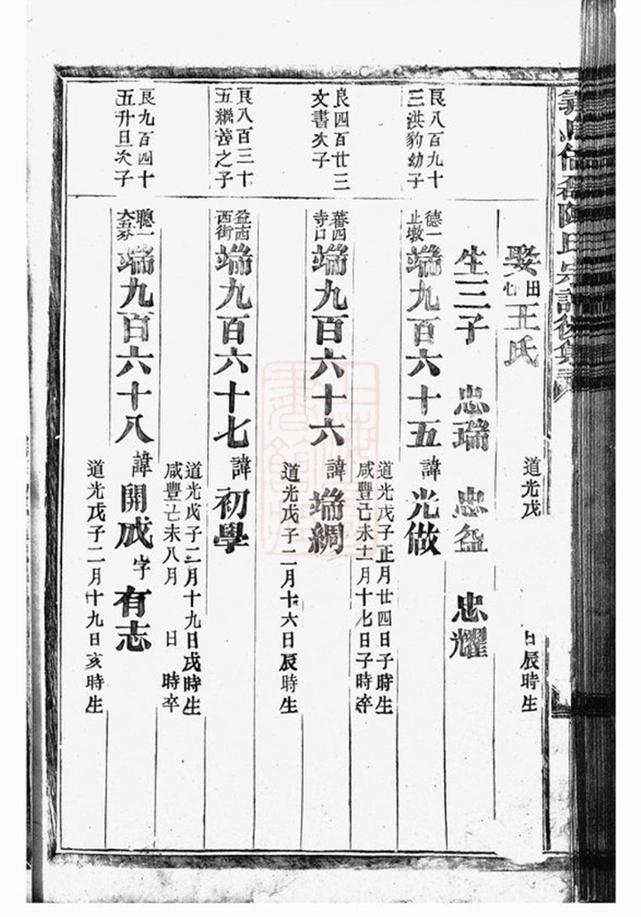 娶田心王氏
道光戊
日辰時生
生三子 忠瑞 忠益 忠耀
良八百九十
三洪豹幼子
德一
止墩
端九百六十五
諱光做
道光戊子正月廿四日子時生
咸豐己未十一月十七日子時卒
良四百廿三
文書次子
蕃四
寺口
端九百六十六
諱端綢
道光戊子二月十六日辰時生
良八百三十
五繼善之子
益西
西街
端九百六十七
諱初學
道光戊子二月十九日戌時生
咸豐己未八月 日 時卒
良九百四十
五升旦次子
聰一
端九百六十八
諱開成字有志
道光戊子二月十九日亥時生